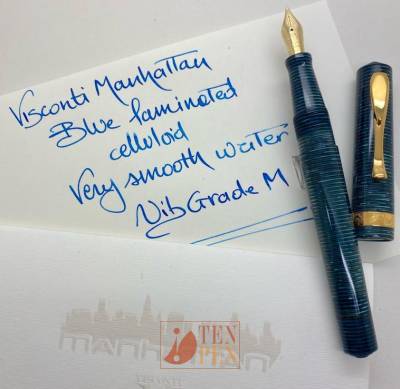 Visconti Manhattan
Blue laminated
celluloid
Very smooth writer
Nib Grade M
TEN
PEN
MANHATTAN